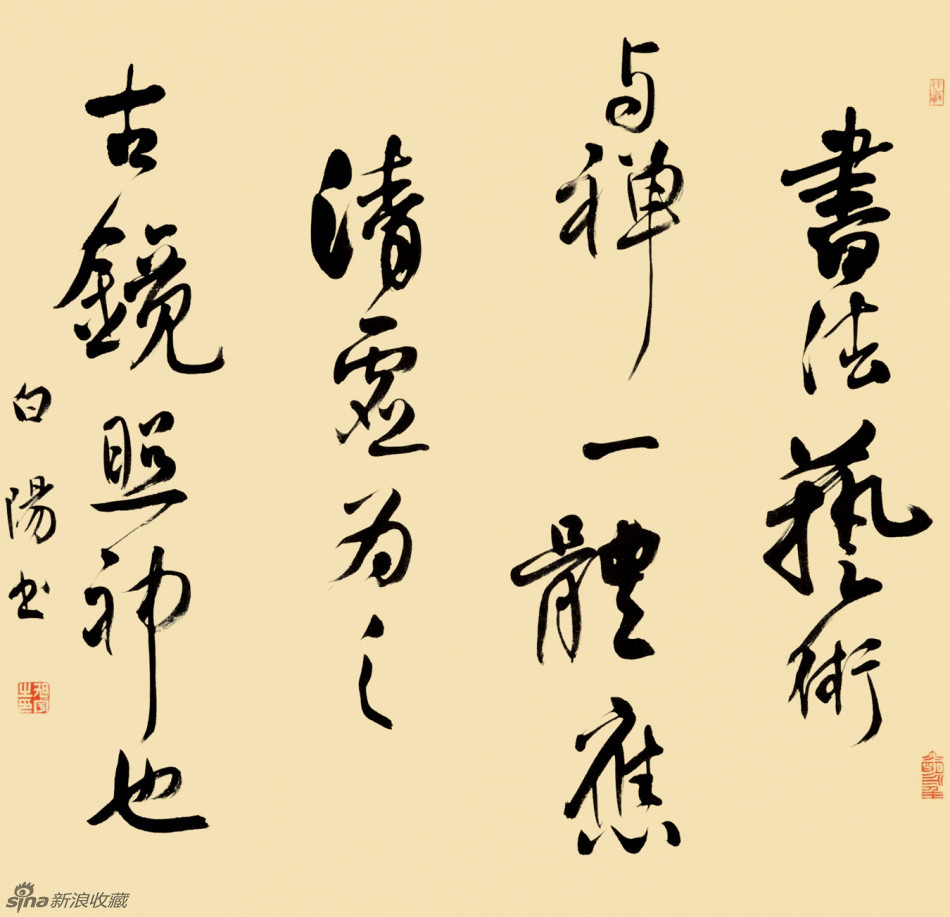 書法藝術
与禅一體應
清虚为之
古鏡照神也
白陽书
sina新浪收藏